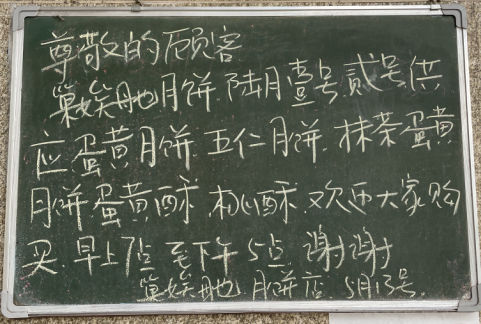 尊敬的顾客
月饼.陆月壹号贰号供
应.蛋黄月饼.五仁月饼.抹茶蛋黄
月饼.蛋黄酥.桃酥.欢迎大家购
买.早上7点至下午5点.谢谢
月饼店 5月13号.